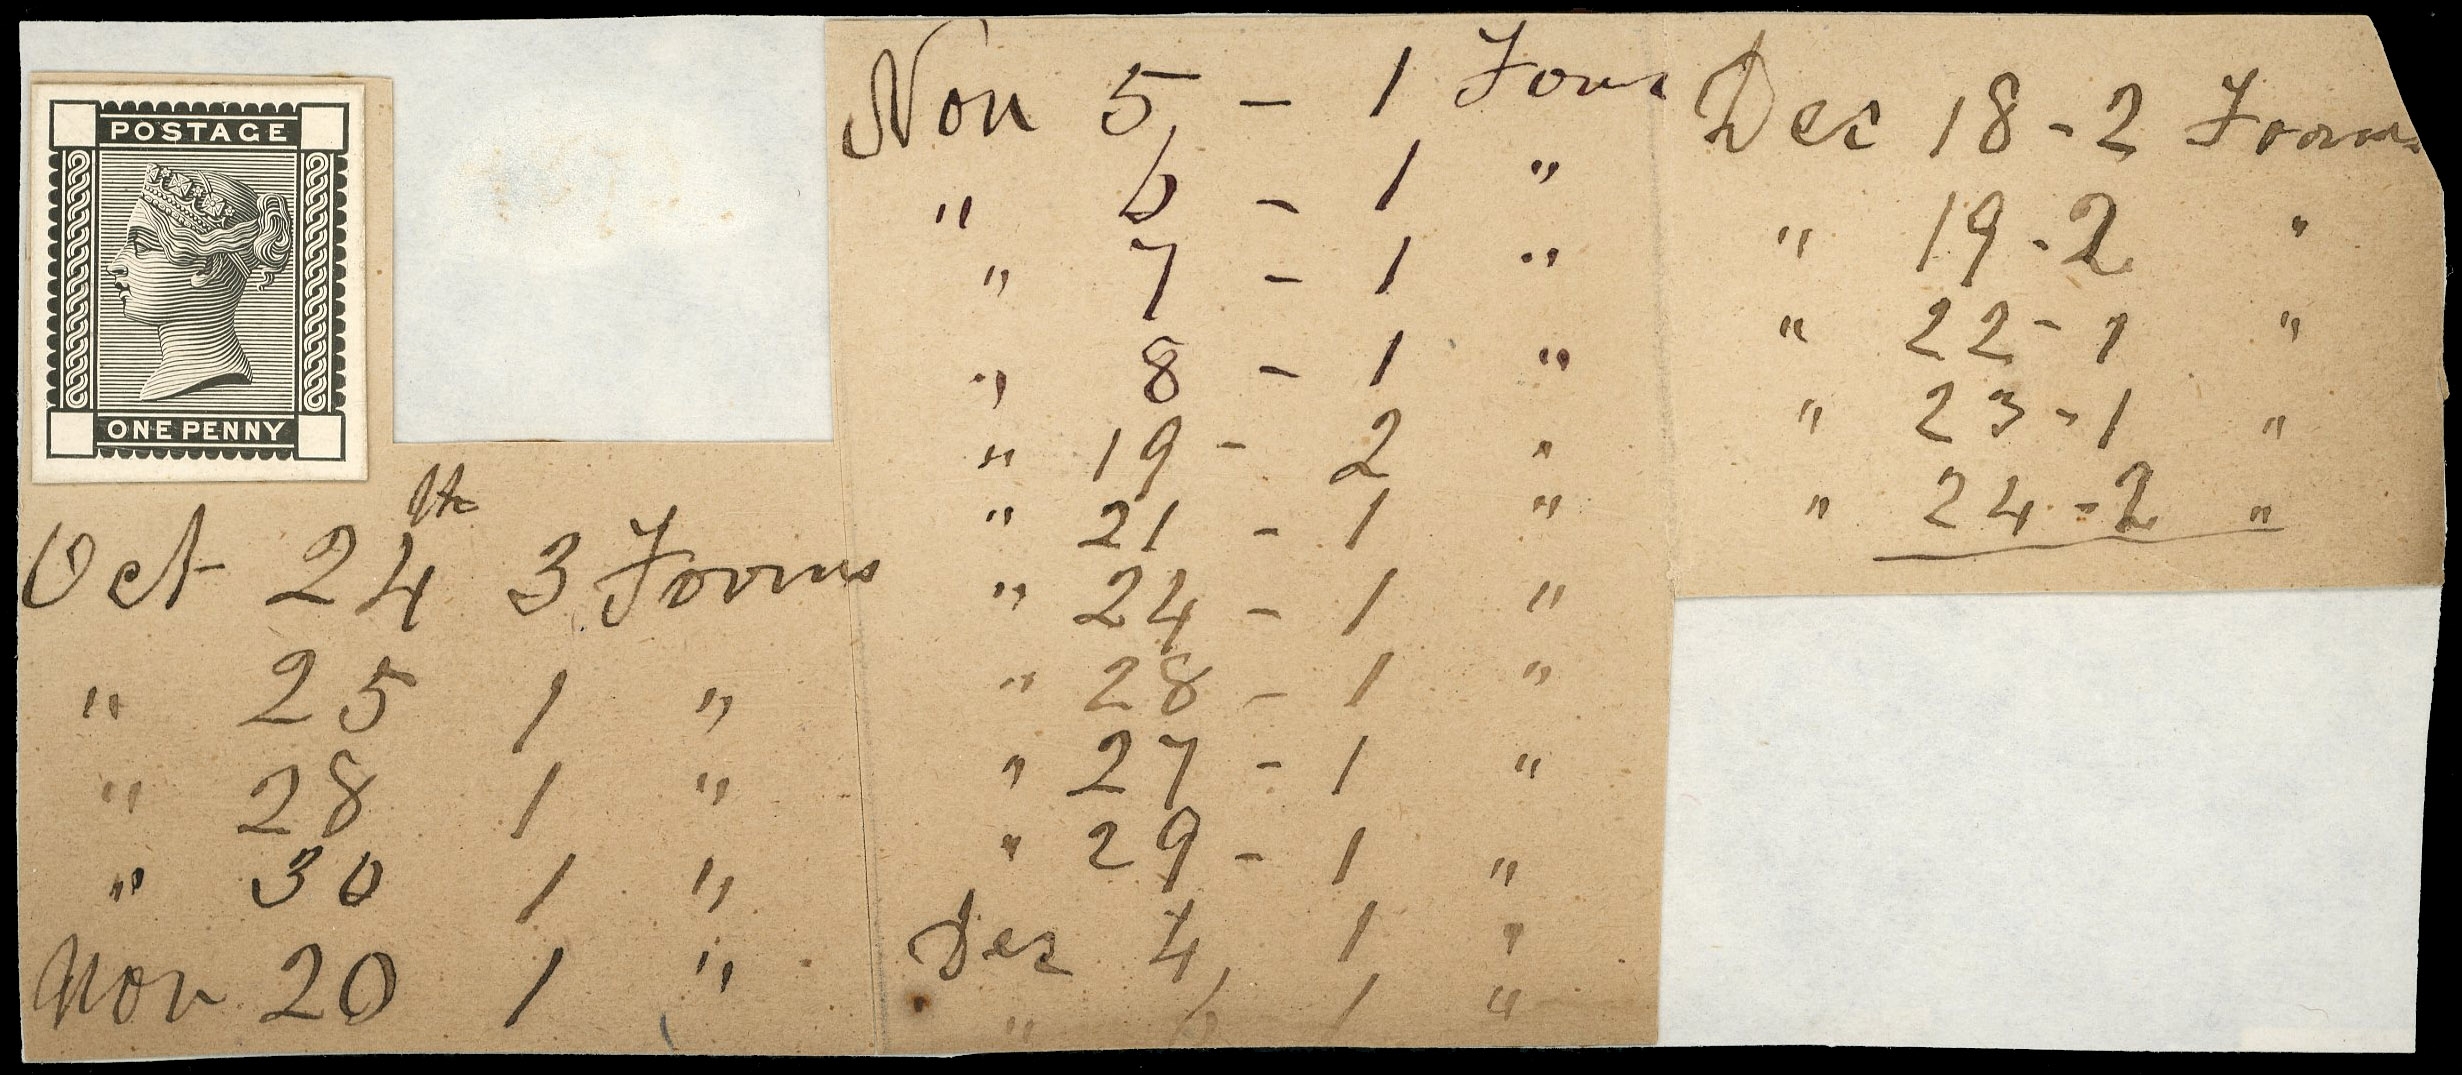 POSTAGE
ONE PENNY
Oct 24th 3 Forms
" 25 1 "
" 28 1 "
" 30 1 "
Nov 20 1 "
Nov 5 - 1 Form
" 6 - 1 "
" 7 - 1 "
" 8 - 1 "
" 19 - 2 "
" 21 - 1 "
" 24 - 1 "
" 28 - 1 "
" 27 - 1 "
" 29 - 1 "
Dec 4 1 "
" 6 1 "
Dec 18 - 2 Forms
" 19 - 2 "
" 22 - 1 "
" 23 - 1 "
" 24 - 2 "